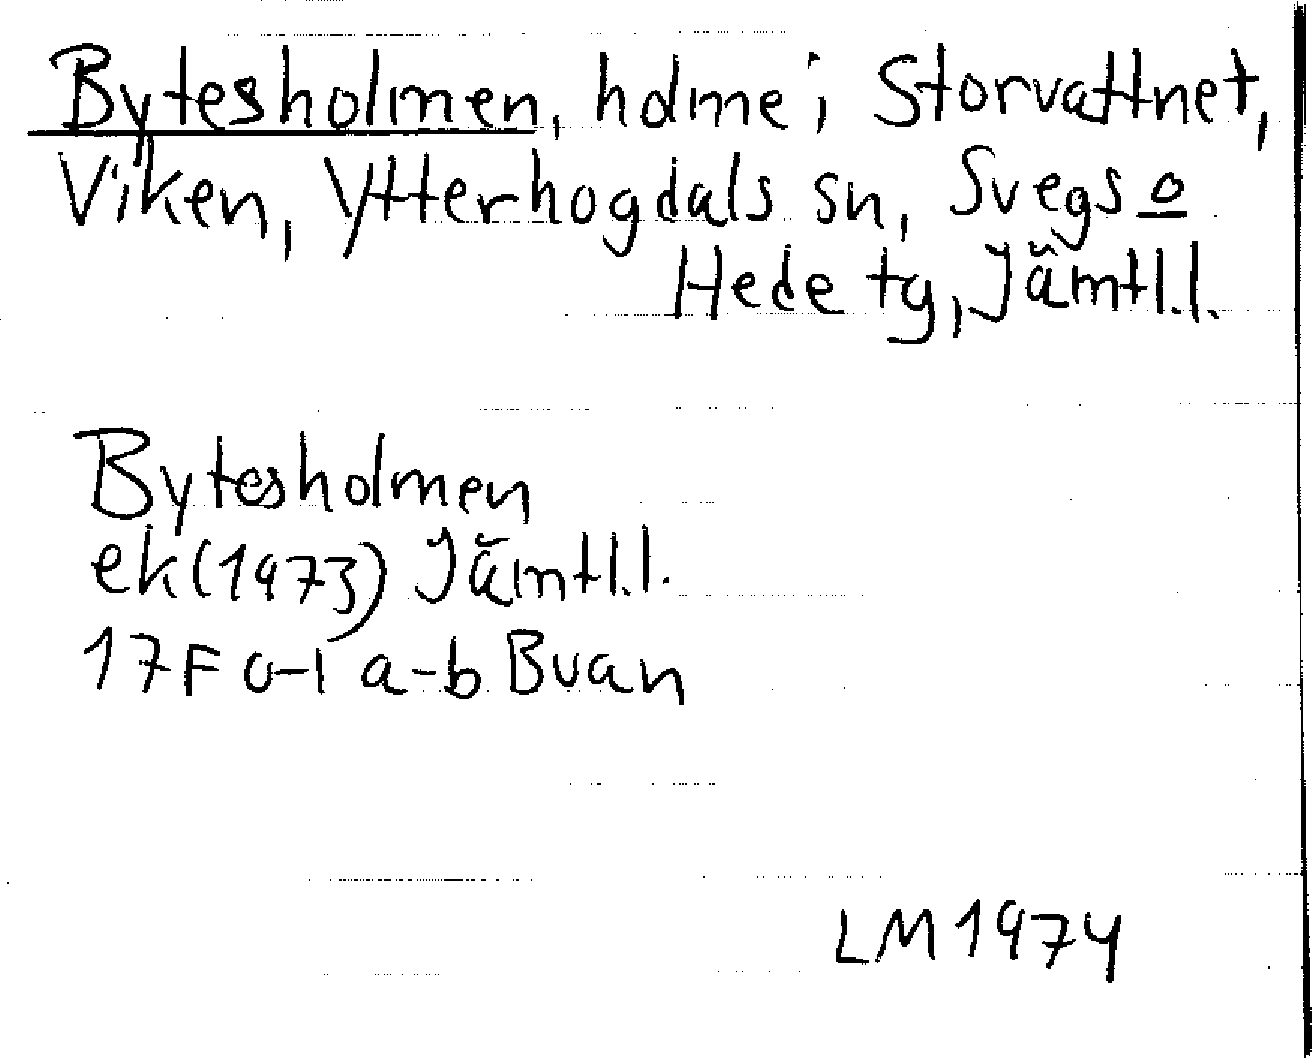 Bytesholmen, holme i Storvattnet,
Viken, Ytterhogdals sn, Svegs o
Hede tg, Jämtl.l.
Bytesholmen
ek (1973) Jämtl.l.
17F 0-1 a-b Buan
LM 1974